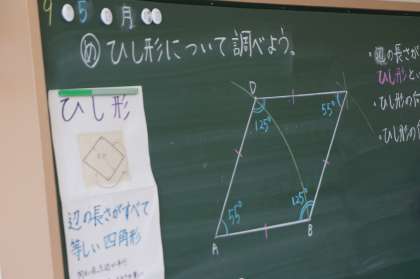 9 5 月
め ひし形について調べよう。
・辺の長さが
ひし形とい
・ひし形の
・ひし形の
ひし形
辺の長さがすべて
等しい四角形
D
125°
55°
55°
125°
A
B